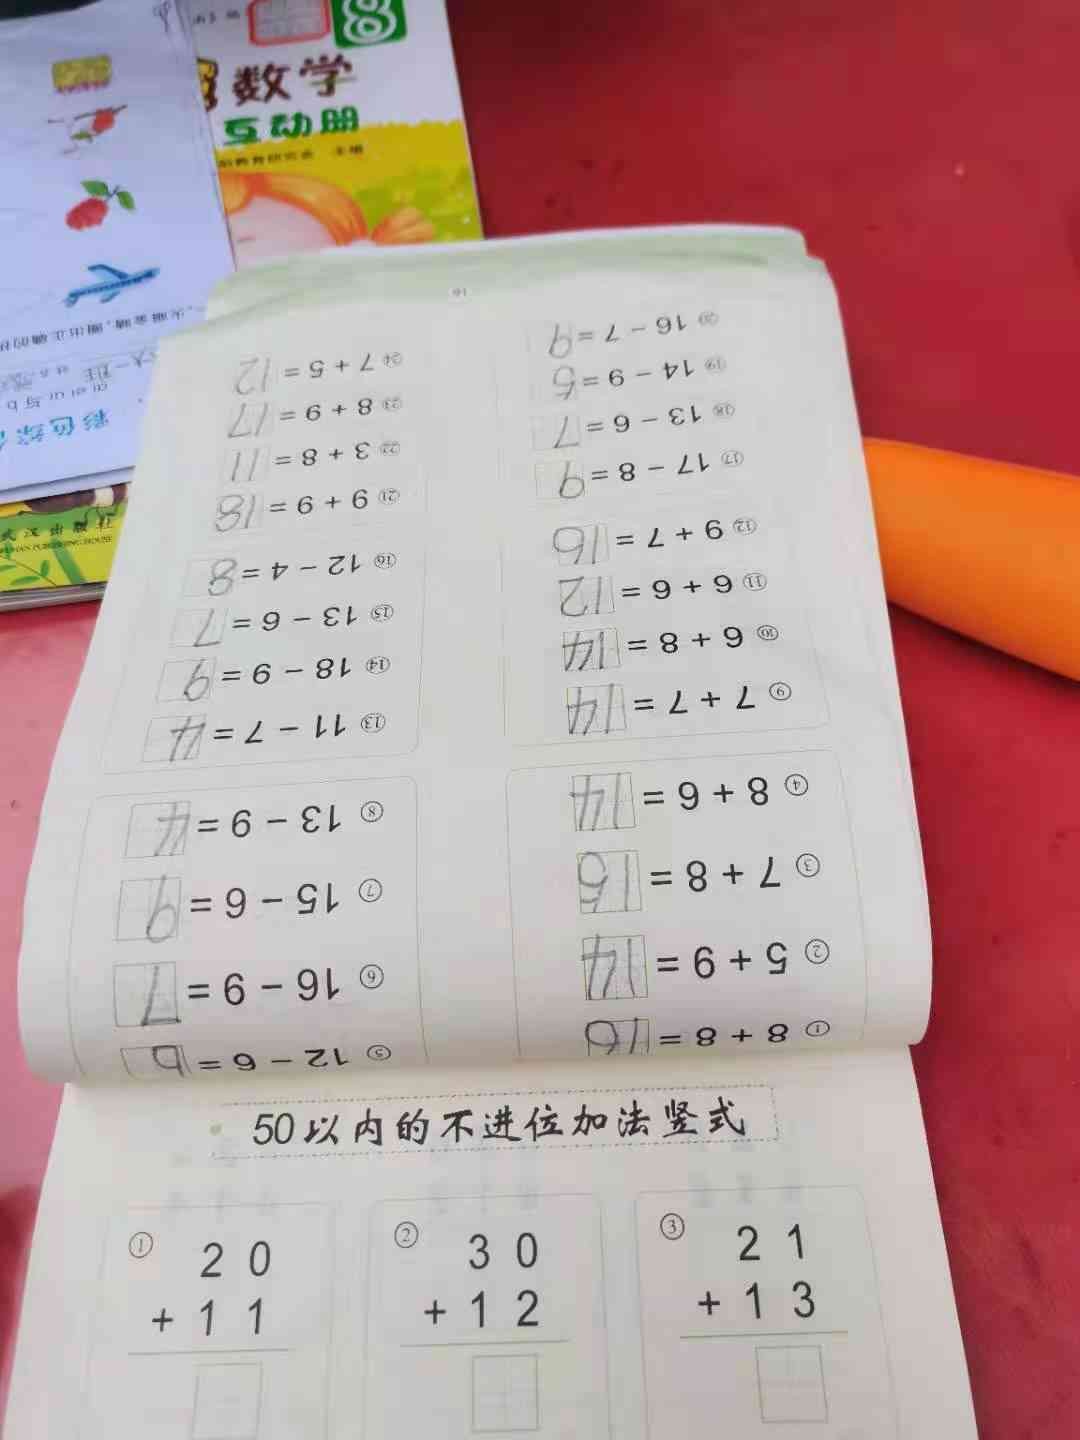 8
数学
互动册
主编
武汉出版社
WUHAN PUBLISHING HOUSE
火眼金睛,圈出正确的
① 8 + 8 = 16
② 5 + 9 = 14
③ 7 + 8 = 15
④ 8 + 6 = 14
⑤ 12 − 6 = 6
⑥ 16 − 9 = 7
⑦ 15 − 6 = 9
⑧ 13 − 9 = 4
⑨ 7 + 7 = 14
⑩ 6 + 8 = 14
⑪ 6 + 6 = 12
⑫ 9 + 7 = 16
⑬ 11 − 7 = 4
⑭ 18 − 9 = 9
⑮ 13 − 6 = 7
⑯ 12 − 4 = 8
⑰ 17 − 8 = 9
⑱ 13 − 6 = 7
⑲ 14 − 9 = 5
⑳ 16 − 7 = 9
㉑ 9 + 9 = 18
㉒ 3 + 8 = 11
㉓ 8 + 9 = 17
㉔ 7 + 5 = 12
16
50以内的不进位加法竖式
① 20
+ 11
② 30
+ 12
③ 21
+ 13